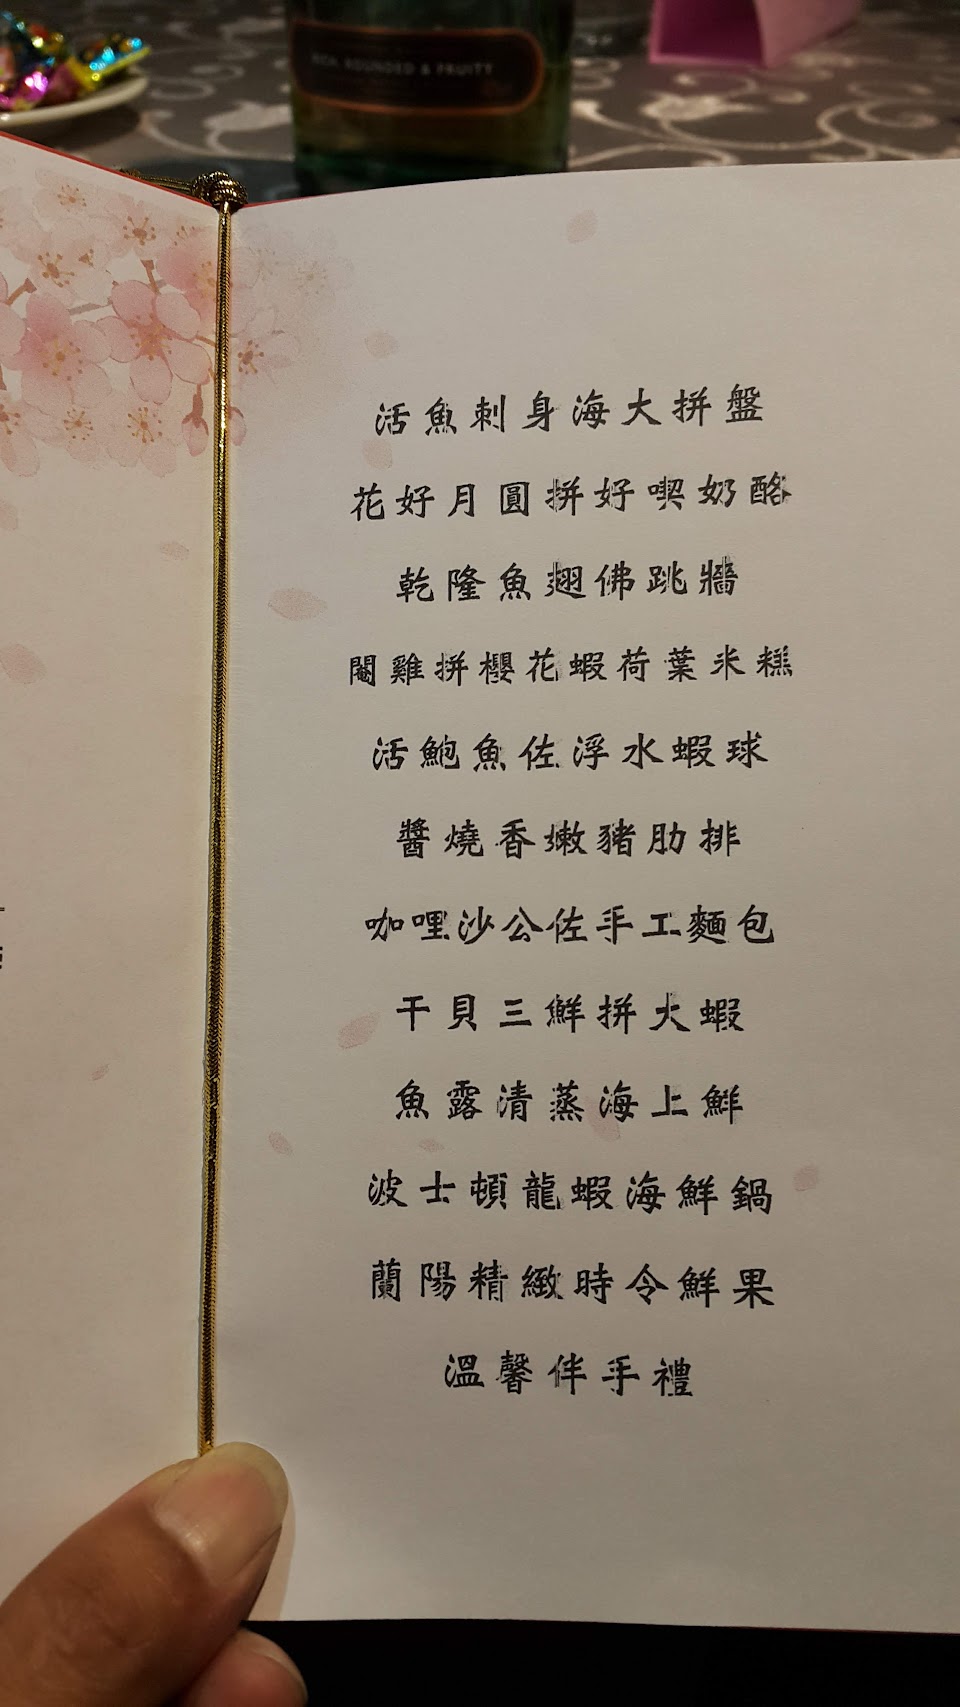 RICH, ROUNDED & FRUITY
活魚刺身海大拼盤
花好月圓拼好喫奶酪
乾隆魚翅佛跳牆
閹雞拼櫻花蝦荷葉米糕
活鮑魚佐浮水蝦球
醬燒香嫩豬肋排
咖哩沙公佐手工麵包
干貝三鮮拼大蝦
魚露清蒸海上鮮
波士頓龍蝦海鮮鍋
蘭陽精緻時令鮮果
溫馨伴手禮